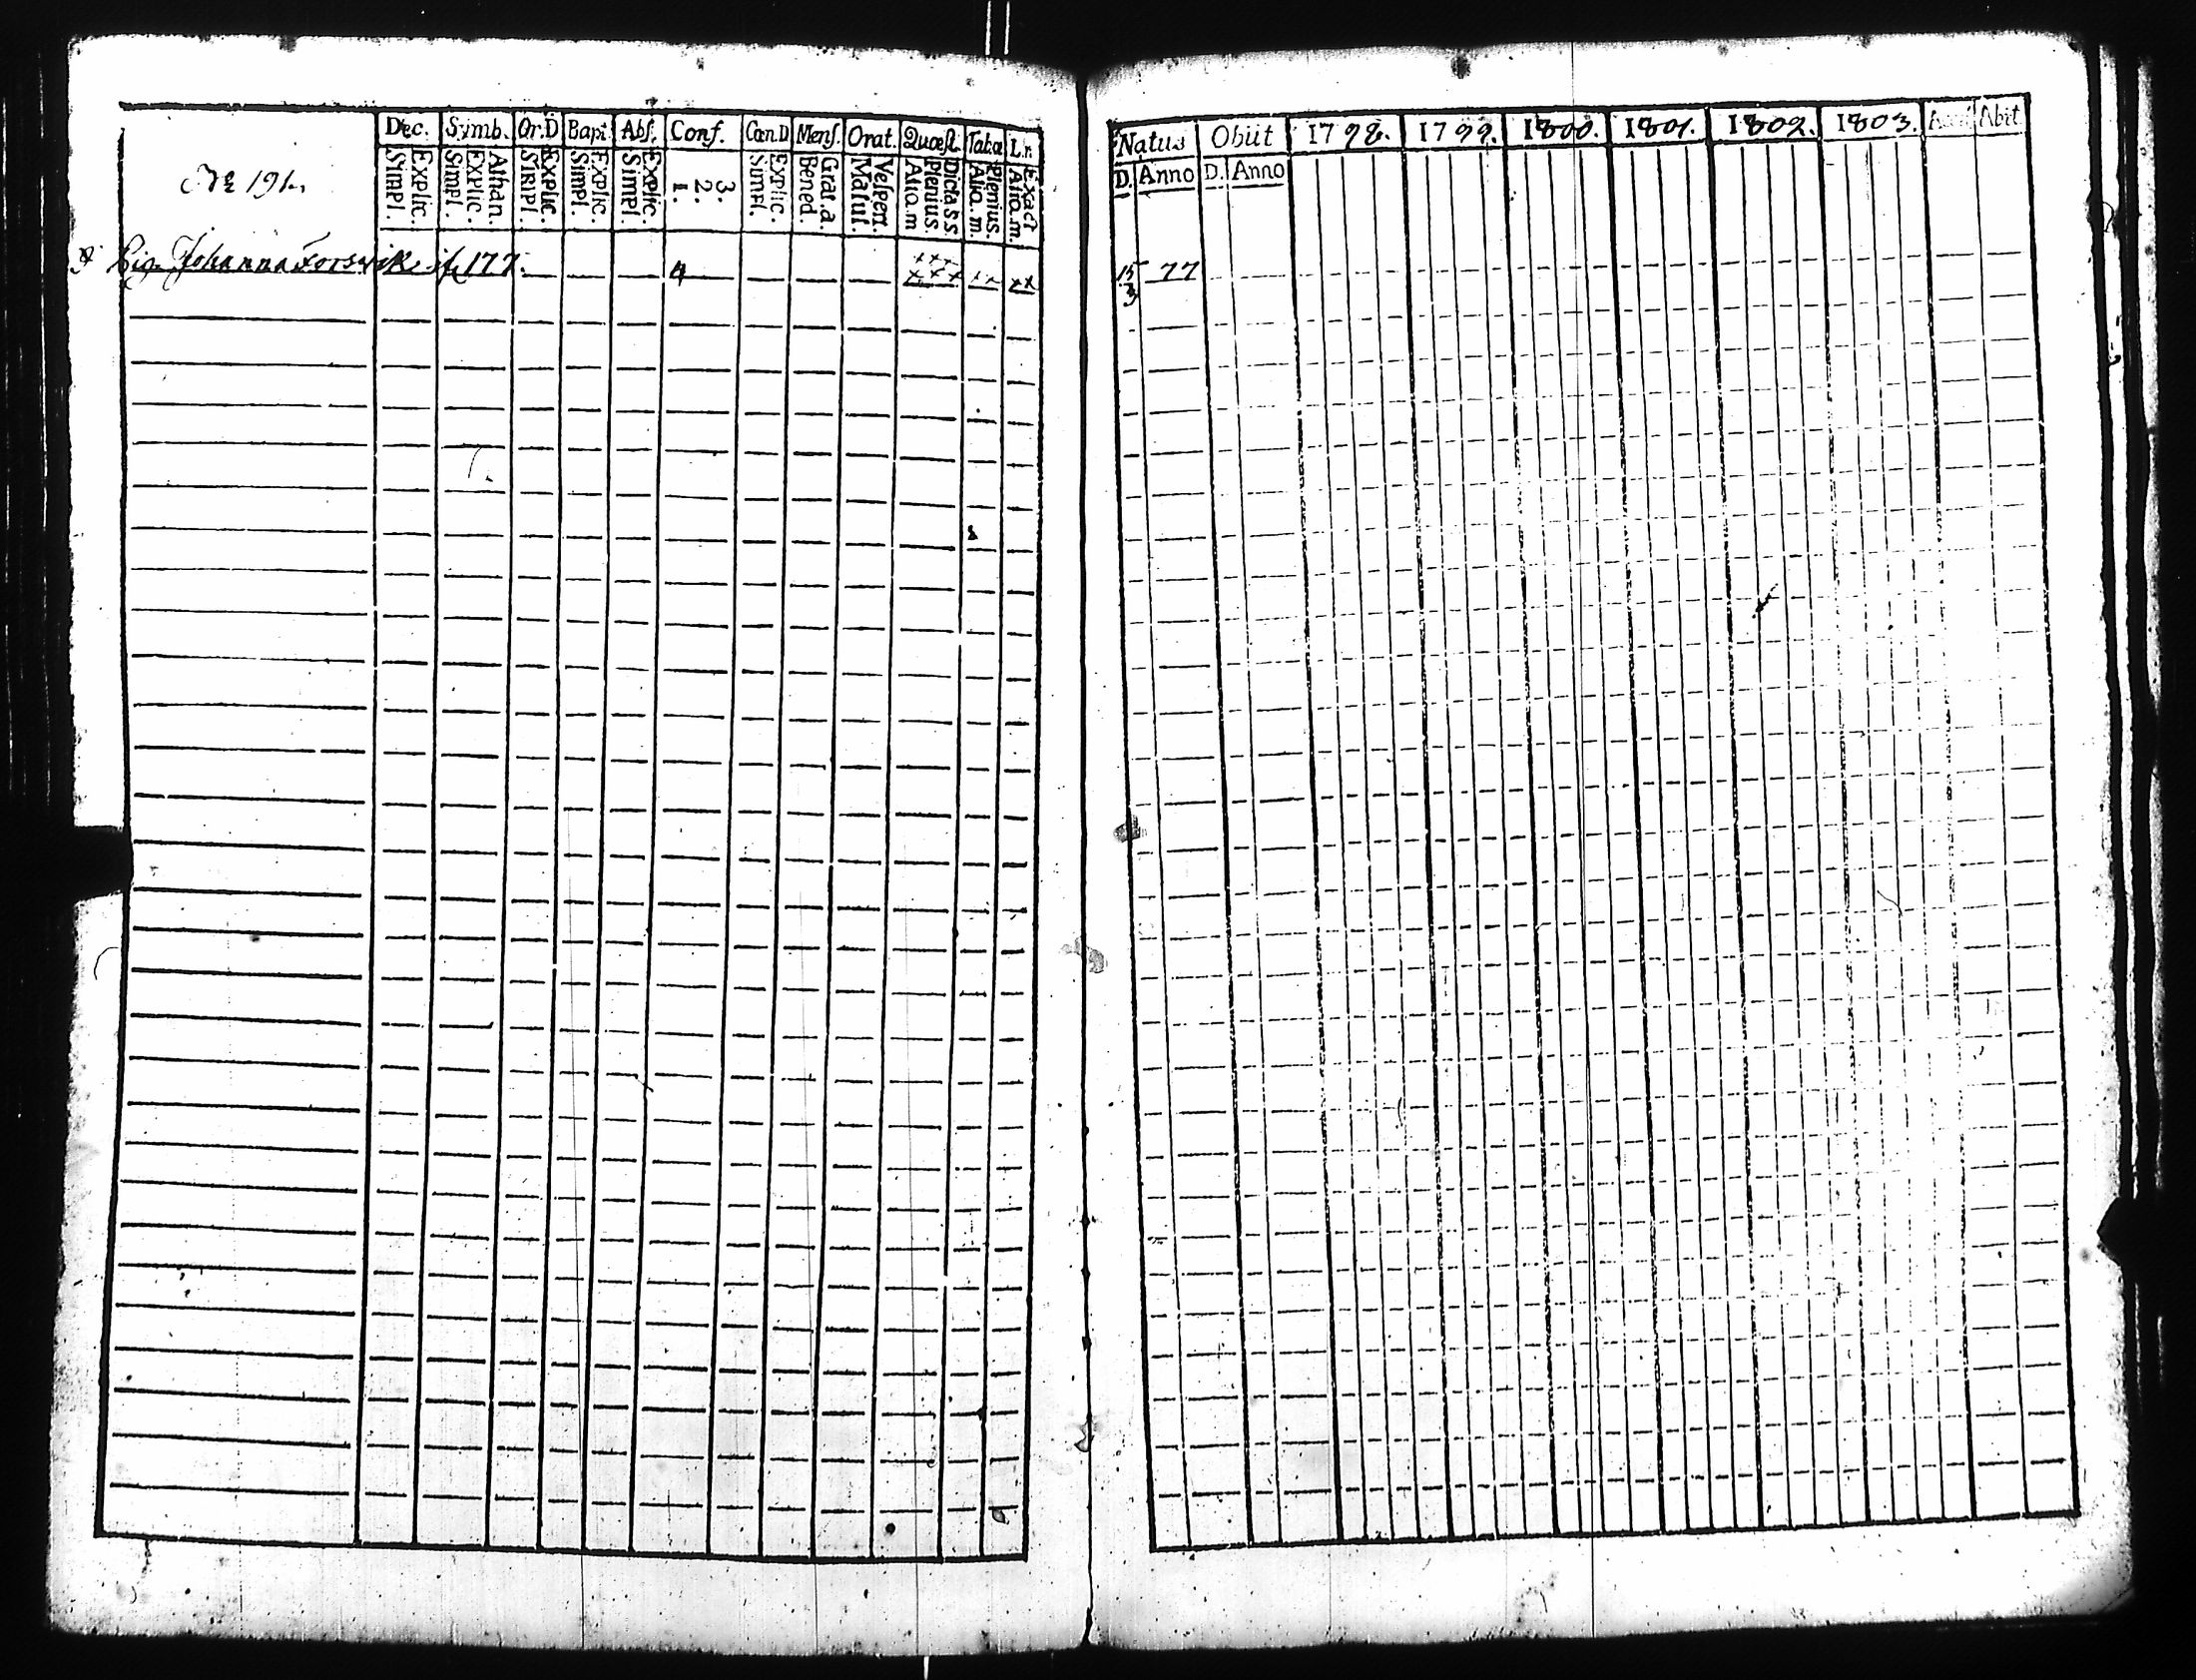 Dec. Symb. Or.D Bapt. Abs. Conf. Cœn.D Mens. Orat. Quæst. Tabæ L.n.
Explic. Simpl. Athan. Explic. Simpl. Explic. Simpl. Explic. Simpl. Explic. Simpl. 3. 2. 1. Explic. Simpl. Grat.a. Bened. Vespert. Matut. Dictass Plenius. Aliq.m Plenius. Aliq.m. Exact Aliq.m.
No 191.
Pig. Johanna Forswik 177. 4
Natus Obiit 1798. 1799. 1800. 1801. 1802. 1803. Abit
D. Anno D. Anno
15/3 77